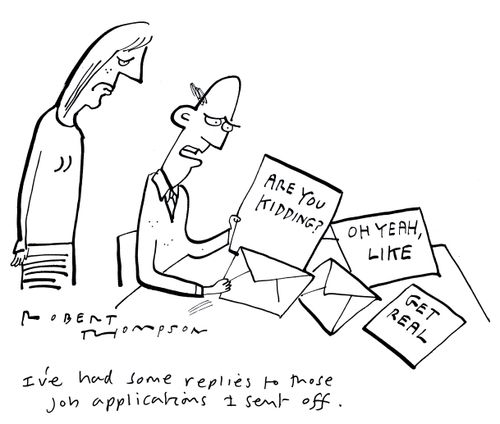 ARE YOU
KIDDING?
OH YEAH,
LIKE
GET
REAL
ROBERT
THOMPSON
I've had some replies to those
job applications I sent off.